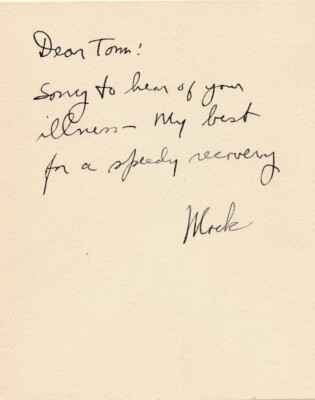 Dear Tom!
Sorry to hear of your
illness— My best
for a speedy recovery
Mock